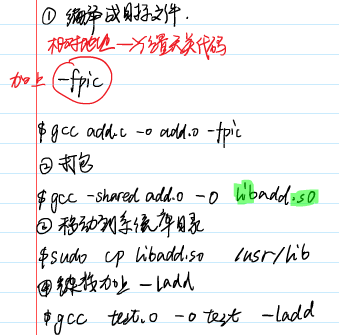 ① 编译成目标文件.
相对地址 → 位置无关代码
加上 -fpic
$ gcc add.c -o add.o -fpic
② 打包
$ gcc -shared add.o -o libadd.so
③ 移动到系统库目录
$ sudo cp libadd.so /usr/lib
④ 链接加上 -ladd
$ gcc test.o -o test -ladd